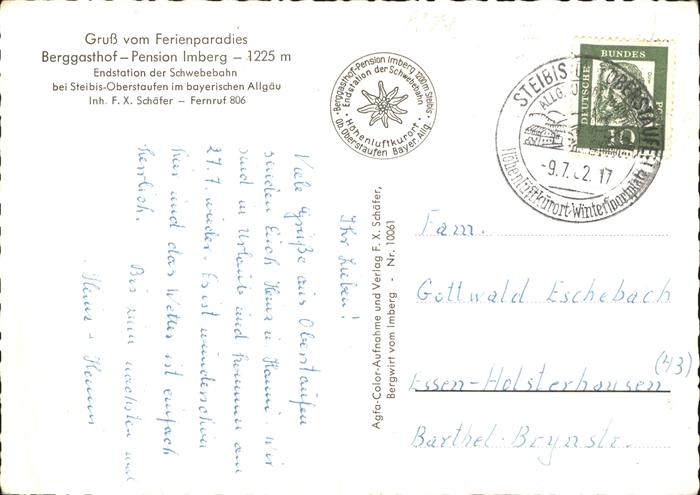 Gruß vom Ferienparadies
Berggasthof – Pension Imberg – 1225 m
Endstation der Schwebebahn
bei Steibis-Oberstaufen im bayerischen Allgäu
Inh. F. X. Schäfer – Fernruf 806
Berggasthof-Pension Imberg 1200 m Steibis
Endstation der Schwebebahn
Höhenluftkurort
üb. Oberstaufen Bayer. Allg.
DEUTSCHE BUNDESPOST
10
STEIBIS OBERSTAUFEN
-9.7.62.17
Höhenluftkurort-Wintersportplatz
Ihr Lieben!
Viele Grüße aus Oberstaufen
senden Euch Heinz u. Hanni. Wir
sind in Urlaub und kommen am
27.7. wieder. Es ist wunderschön
hier und das Wetter ist einfach
herrlich. Bis zum nächsten mal
Heinz + Hanni
Agfa-Color-Aufnahme und Verlag F. X. Schäfer,
Bergwirt vom Imberg - Nr. 10061
Fam.
Gottwald Eschebach
(43)
Essen-Holsterhausen
Barthel-Brynstr.